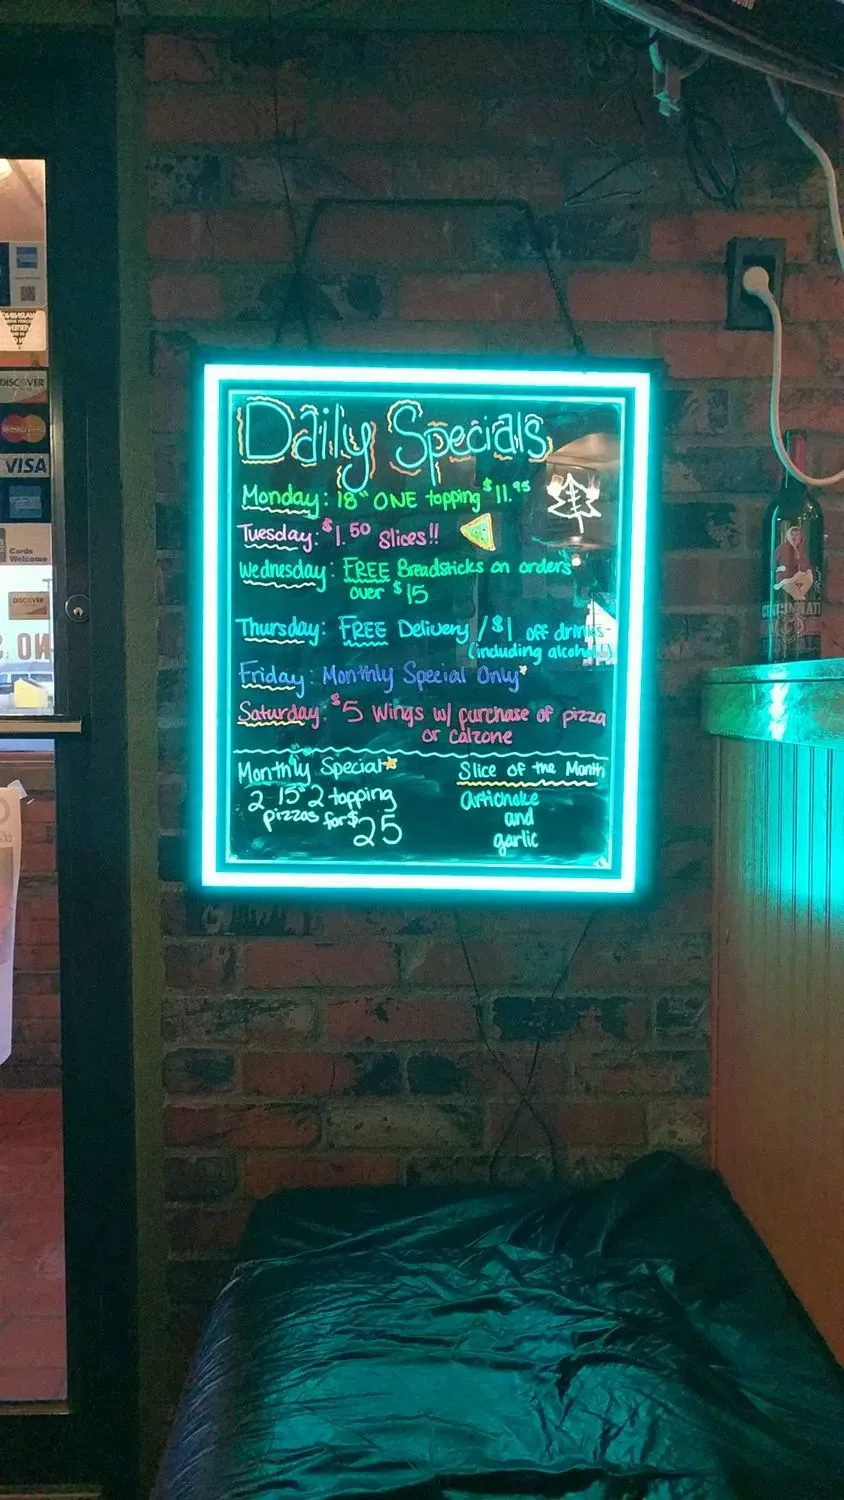 Daily Specials
Monday: 18" ONE topping $11.95
Tuesday: $1.50 Slices!!
Wednesday: FREE Breadsticks on orders
over $15
Thursday: FREE Delivery / $1 off drinks
(including alcohol)
Friday: Monthly Special Only*
Saturday: $5 Wings w/ purchase of pizza
or calzone
Monthly Special*
2 15" 2 topping
pizzas for $25
Slice of the Month
artichoke
and
garlic
WARNING
DISCOVER
MasterCard
VISA
Cards
Welcome
DISCOVER
NO
CINCINNATI